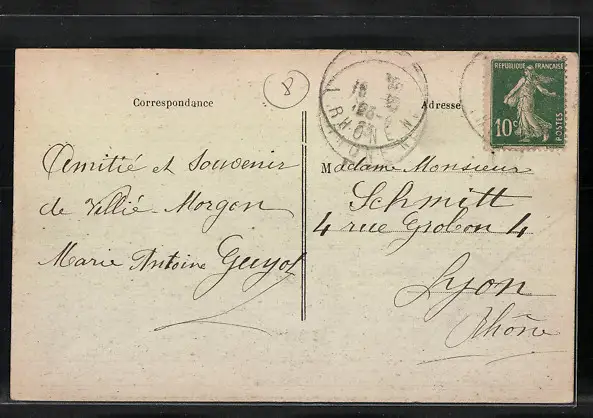 RÉPUBLIQUE FRANÇAISE
10c
POSTES
RHONE
Correspondance
Adresse
Amitié et Souvenir
de Villié Morgon
Marie Antoine Guyot
Madame Monsieur
Schmitt
4 rue Grobon 4
Lyon
Rhône